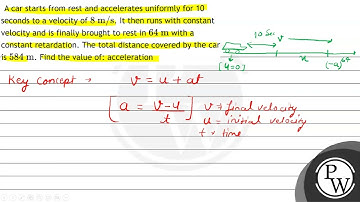 A car starts from rest and accelerates uniformly for 10
seconds to a velocity of 8 m/s. It then runs with constant
velocity and is finally brought to rest in 64 m with a
constant retardation. The total distance covered by the car
is 584 m. Find the value of: acceleration
10 Sec v
(u=0) x (-a) 64
Key concept → v = u + at
[a = v-u/t] v → final velocity
u = initial velocity
t → time
P
W